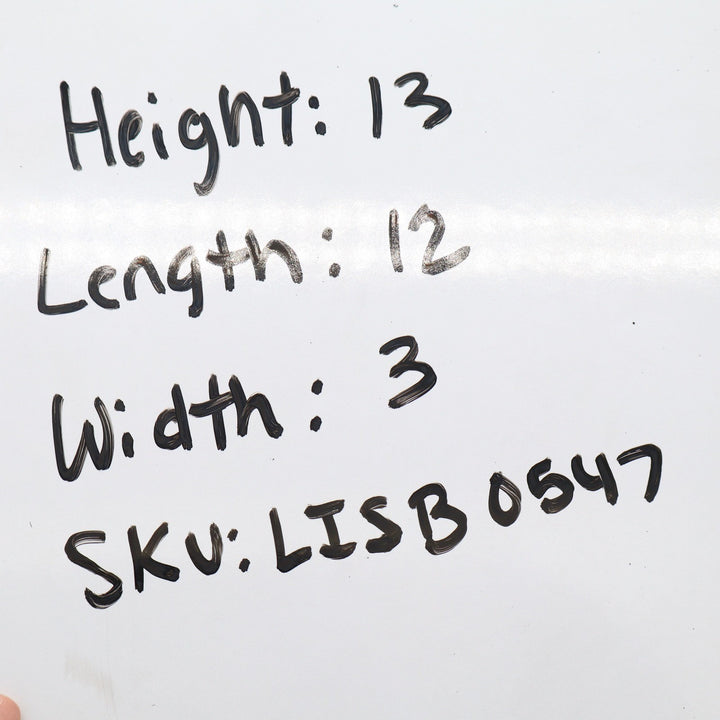 Height: 13
Length: 12
Width: 3
SKU: LISB0547